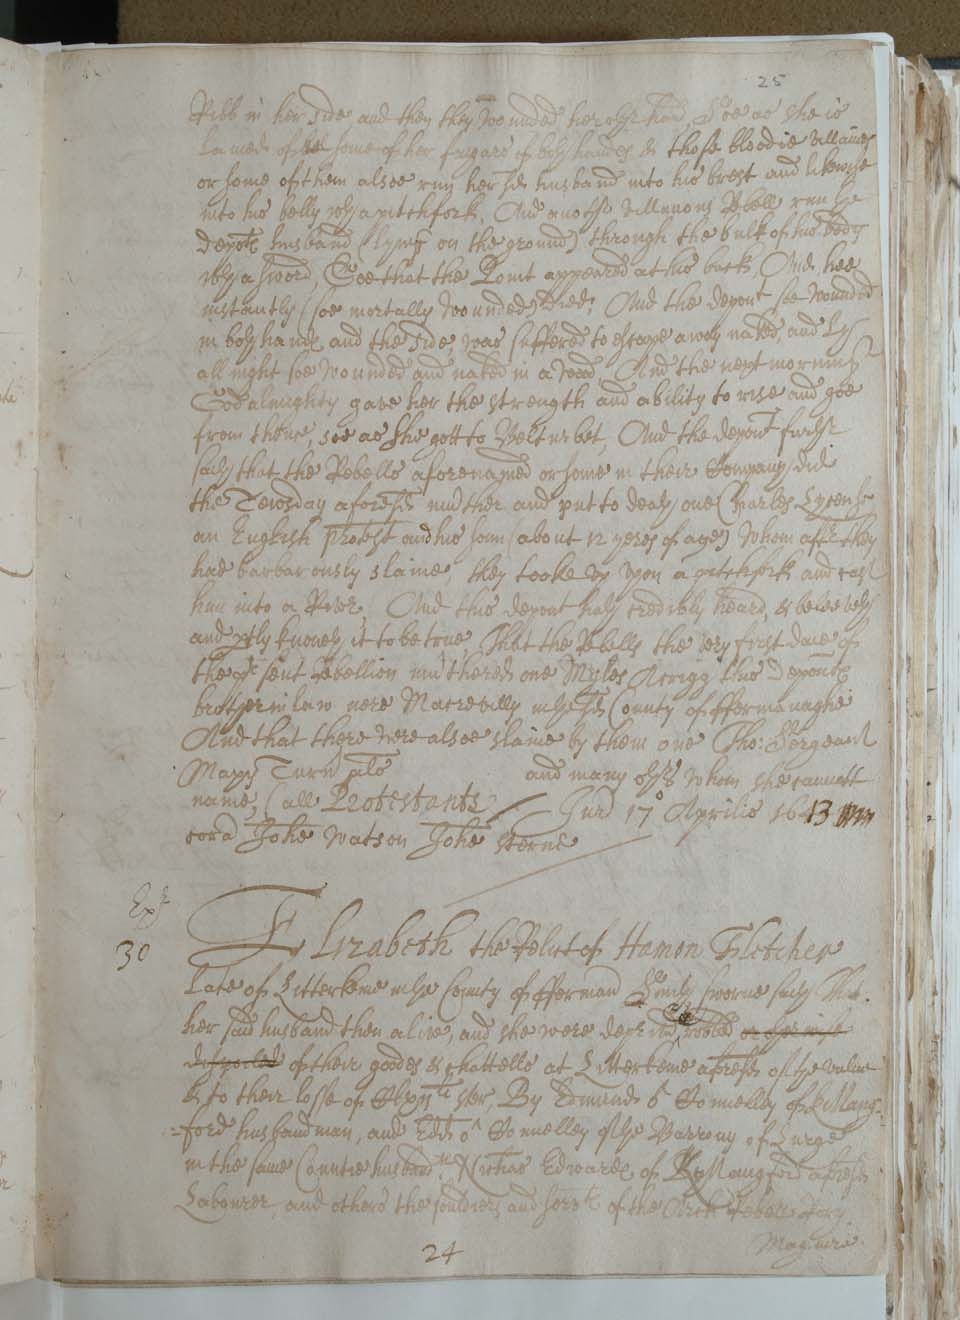 25
Ribb in her side and then they wounded her other hand, Soe as she is
lamed of some of her fingars of both handes & those bloodie villaines
or some of them alsoe run her sd husband into his brest and likewise
into his belly with a pitchfork, And another villanous Rebell run the
deponts husband (lying on the ground) through the bulk of his body
with a sword, Soe that the Point appeared at his back, And hee
instantly (soe mortally wounded) died, And the depont soe wounded
in both hands and the side, was suffered to escape away naked, and ly
all night soe wounded and naked in a wood And the next morning
God almighty gave her the strength and ability to rise and goe
from thence, soe as she gott to Belturbet, And the depont further
saith that the Rebells aforenamed or some in their Company did
the Tewsday aforesd murther and put to death one Charles
an English protestt and his sonn (about 12 yeres of age) whom after they
had barbarously slaine, they tooke vp vpon a pitchfork and cast
him into a River And this depont hath credibly heard, & beleeveth
and ptly knoweth it to be true, That the Rebells the very first daie of
the psent Rebellion murthered one Myles Acrigg this deponts
brother in law nere Macrevilly in the sd County of ffermanaghe
And that there were alsoe slaine by them one Tho: Sergeant
and many others whom she cannott
name, (all Protestants Jur 17o Aprilis 1643
cora Johe Watson Johe Sterne
Exr
30
Elizabeth the Relict of Hamon Fletcher
Late of Litterkeme in the County of fferman sworne saith That
her said husband then alive, and she were depr and robbed or otherwise
dispoiled of their goodes & chattells at Litterkeme aforesd of the value
& to their losse of ster, By Edmund ô Connelley of killang=
=ford husbandman, and Edd ô Connelley of the Barrony of Lurge
in the same Countie husbandmn Nichas Edwards, of Kyllangford aforesd
Labourer, and others the souldiers and servts of the Arch Rebell Rory
Maguire
24